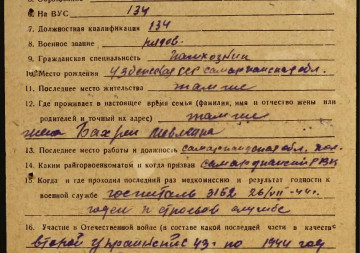 6. На ВУС 134
7. Должностная квалификация 134
8. Военное звание рядов.
9. Гражданская специальность
10. Место рождения Узбекская ССР Самаркандская обл.
11. Последнее место жительства там же
12. Где проживает в настоящее время семья (фамилия, имя и отчество жены или
родителей и точный их адрес) там же
жена Бахри
13. Последнее место работы и должность Самаркандская обл.
14. Каким райгорвоенкоматом и когда призван Самаркандский РВК
15. Когда и где проходил последний раз медкомиссию и результат годности к
военной службе госпиталь 3162 26/VII-44г.
годен к строевой службе
16. Участие в Отечественной войне (в составе какой последней части в качестве
второй Украинский 43г. по 1944 год